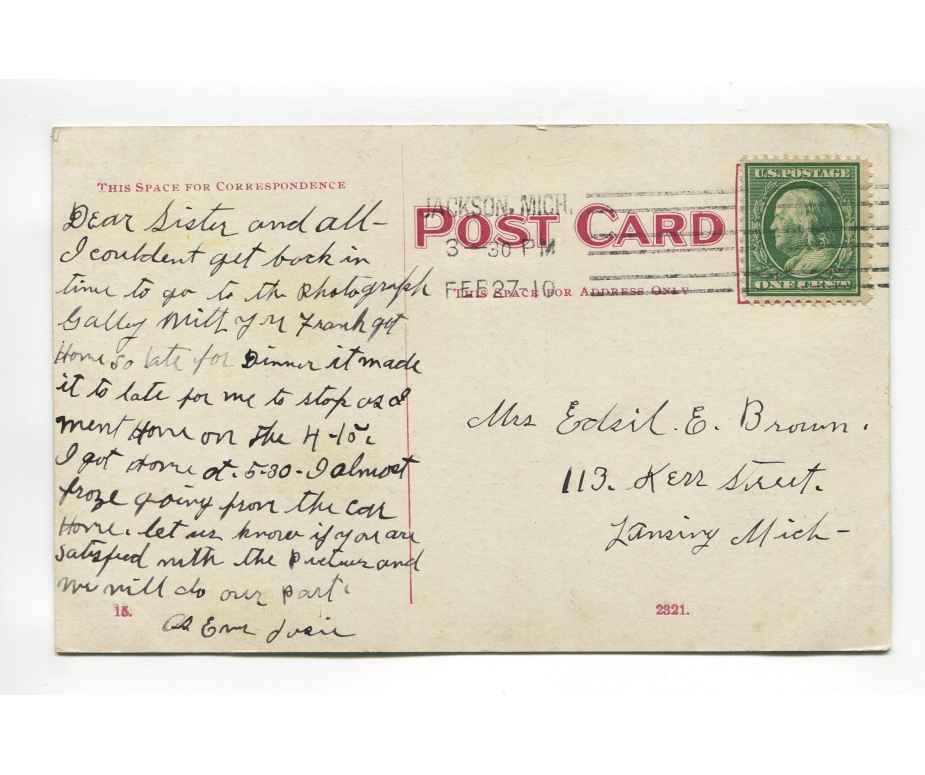 THIS SPACE FOR CORRESPONDENCE
Dear Sister and all-
I couldent get back in
time to go to the Photograph
Galley Frank got
Home so late for Dinner it made
it to late for me to stop as I
went Home on the 4-15.
I got Home at. 5-30- I almost
froze going from the car
Home. let us know if you are
satisfied with the Pictures and
we will do our part.
As Ever Josie
15.
JACKSON, MICH.
3-30 PM
FEB 27 10
POST CARD
THIS SPACE FOR ADDRESS ONLY
U.S. POSTAGE
ONE CENT
Mrs Edsil. E. Brown.
113. Kerr Street.
Lansing Mich-
2321.